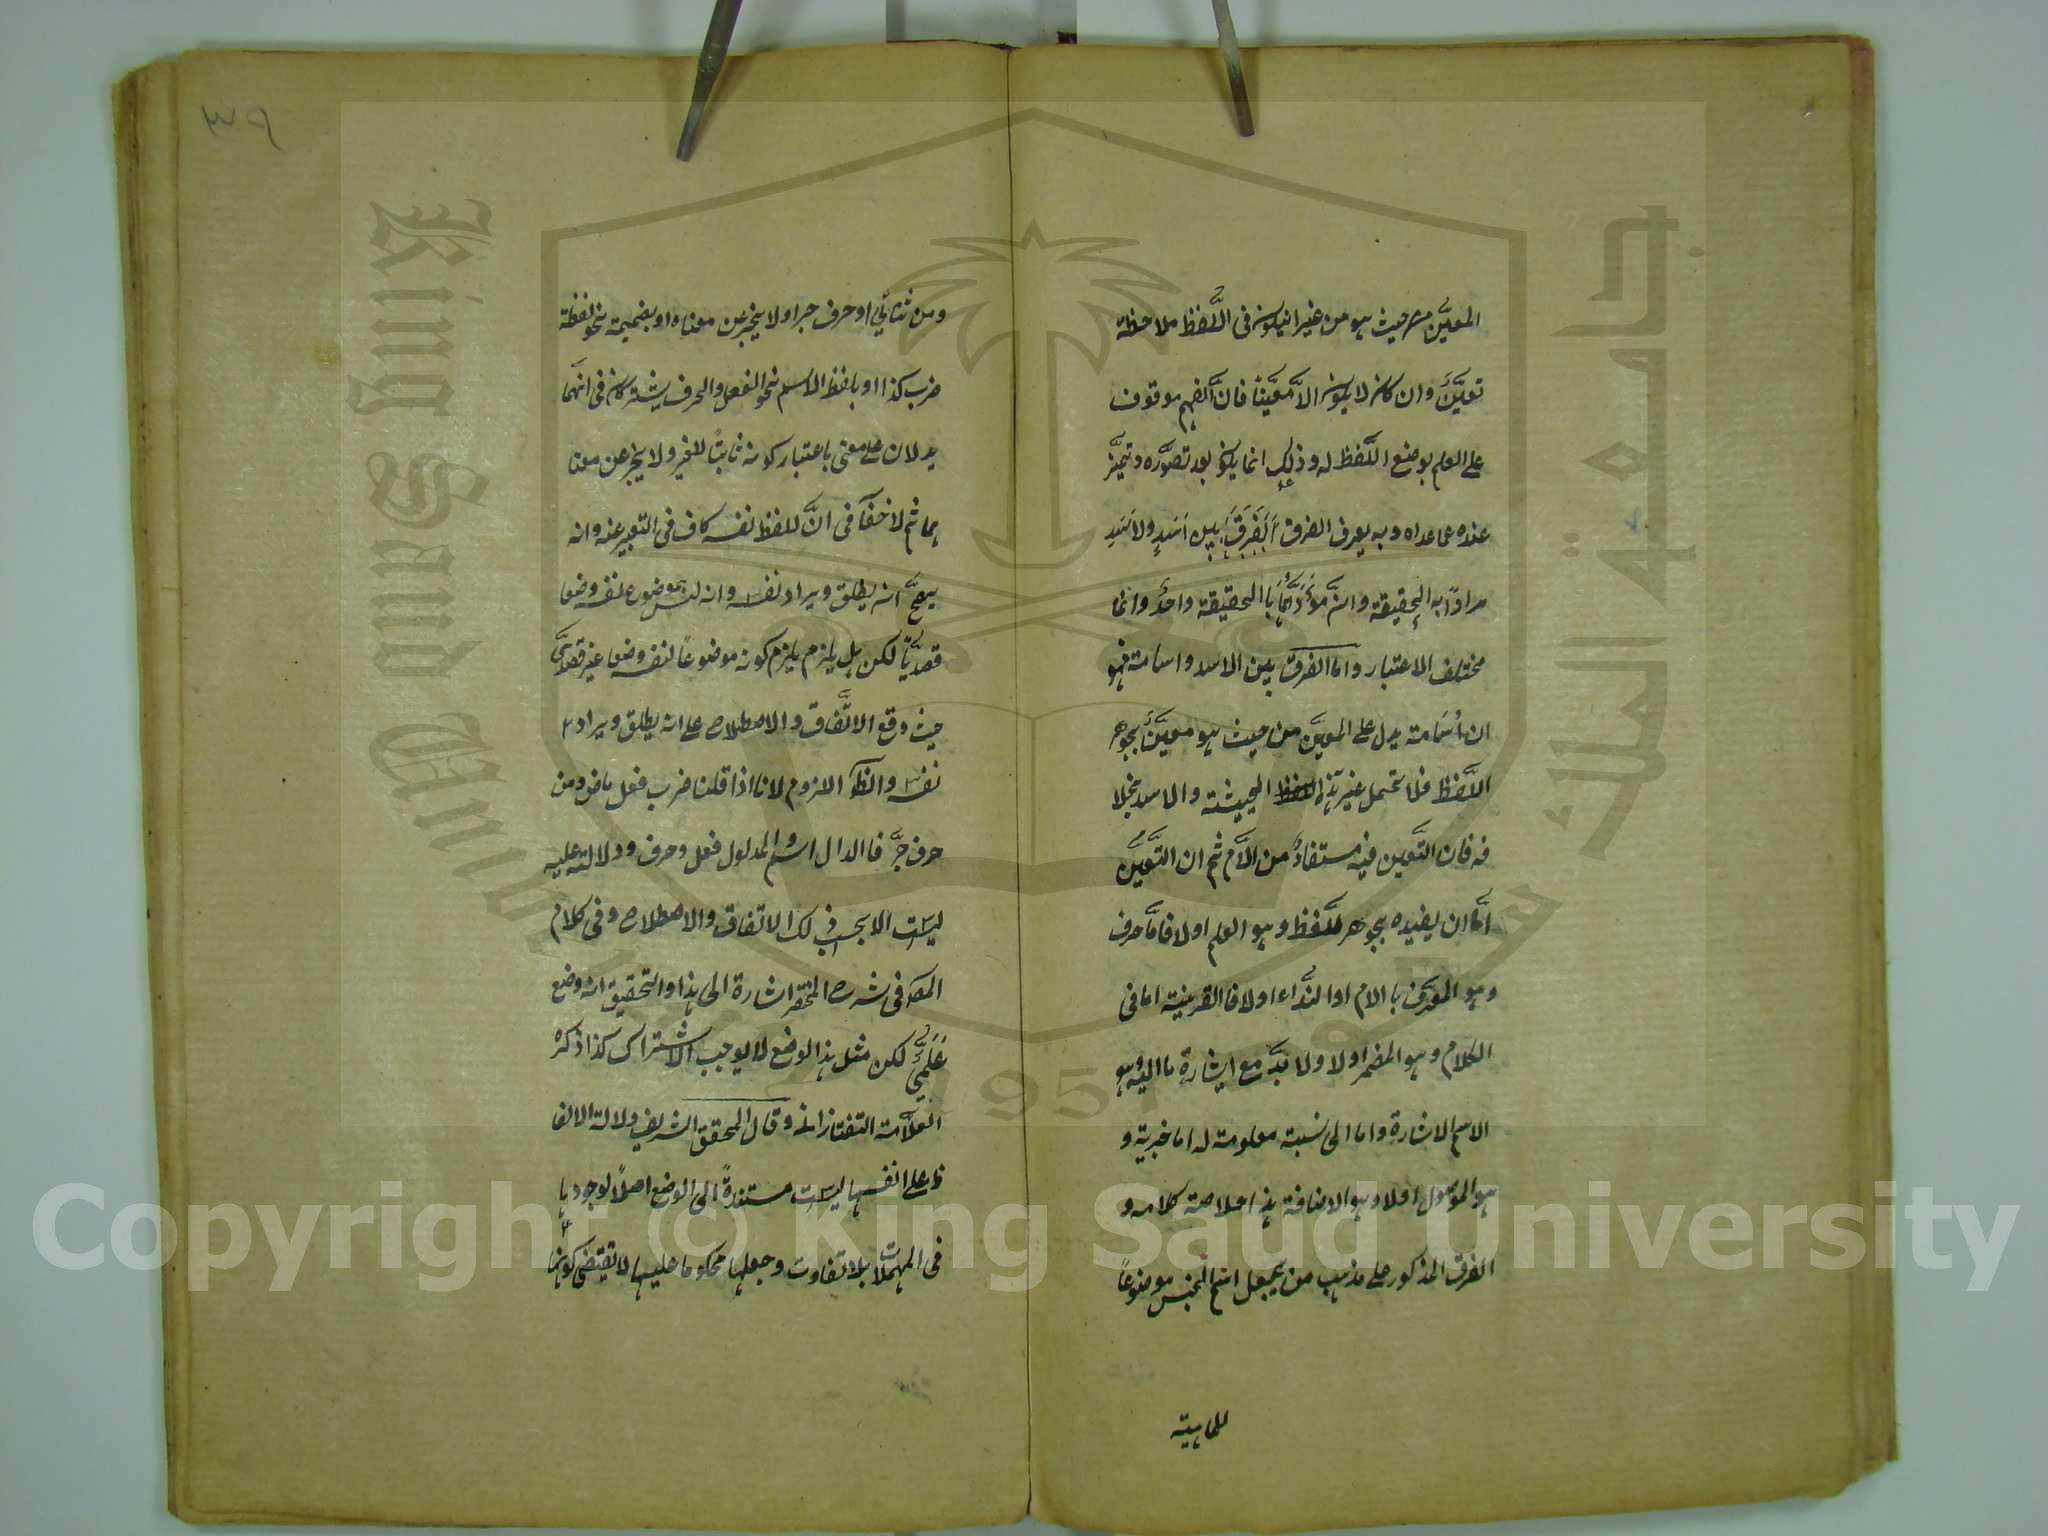 المعيّن من حيث هو من غير ان يكون فى اللّفظ ملاحظة
تعيّن وان كان لا يكون الاّ معيّنا فانّ الفهم موقوف
على العلم بوضع اللّفظ له وذلك انما يكون بعد تصوّره وتميّز
عنده عما عداه وبه يعرف الفرق الفرق بين اسد والاسد
مرادًا به الحقيقة وانّ مؤدّاهما بالحقيقة واحد وانما
مختلف الاعتبار واما الفرق بين الاسد واسامة فهو
ان اُسَامة يدل على المعيّن من حيث هو معيّن بجوهر
اللّفظ فلا تحتمل غير هذه الحيثية والاسد بخلا
فه فان التّعين فيه مستفادٌ من اللّام ثم ان التّعين
امّا ان يفيده بجوهر اللّفظ وهو العلم اولا فامّا حرف
وهو المعرّف باللام او النّداء اولا فالقرينة اما فى
الكلام وهو المضمر اولا ولا بدّ مع اشارة ما اليه وهو
الاسم الاشارة واما الى نسبة معلومة له اما خبرية و
هو الموصول اولا وهو الاضافة هذا خلاصة كلامه و
الفرق المذكور على مذهب من يجعل اسم الجنس موضوعًا
للماهية
ومن ثنائي او حرف جر اولا يخبر عن معناه او بضميمة نحو لفظة
ضرب كذا او بلفظ الاسم نحو الفعل والحرف يشتركان فى انّهما
يدلان على معنى باعتبار كونه ثابتًا للغير ولا يخبر عن معنا
هما ثم لا خفآ فى انّ للفظ نفسه كاف فى التعبير عنه وانه
يصحّ انه يطلق ويراد نفسه وانه ليس بموضوع لنفسه وضعا
قصديّا لكن بل يلزم يلزم كونه موضوعًا لنفسه وضعا غير قصدىّ
حيث وقع الاتّفاق والاصطلاح على انه يطلق ويراد
نفسه والظ اللزوم لانا اذا قلنا ضرب فعل ماض ومن
حرف جرّ فالدال اسم والمدلول فعل وحرف ودلالته عليه
ليست الا بحسب ذلك الاتفاق والاصطلاح وفى كلام
المص فى شرح المختصر اشارة الى هذا والتحقيق انه وضع
عَلَمىّ لكن مثل هذا الوضع لا يوجب الاشتراك كذا ذكره
العلاّمة التفتازانى وقال المحقق الشريف ودلالة الالفا
ظ على انفسها ليست مستندةً الى الوضع اصلًا لوجودها
فى المهملات بلا تفاوت وجعلها محكوما عليها لا تقتضى كونها
Copyright © King Saud University
King Saud University
جامعة الملك سعود
1957